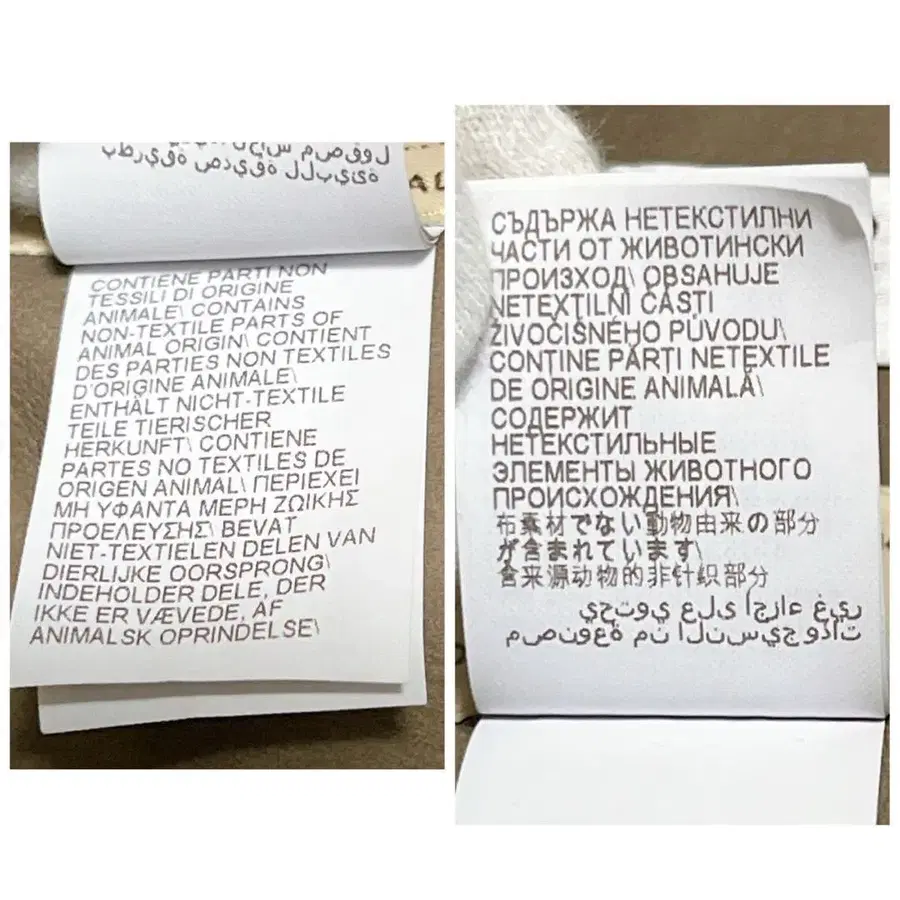 AL
CONTIENE PARTI NON
TESSILI DI ORIGINE
ANIMALE\ CONTAINS
NON-TEXTILE PARTS OF
ANIMAL ORIGIN\ CONTIENT
DES PARTIES NON TEXTILES
D'ORIGINE ANIMALE\
ENTHÄLT NICHT-TEXTILE
TEILE TIERISCHER
HERKUNFT\ CONTIENE
PARTES NO TEXTILES DE
ORIGEN ANIMAL\ ΠΕΡΙΕΧΕΙ
ΜΗ ΥΦΑΝΤΑ ΜΕΡΗ ΖΩΙΚΗΣ
ΠΡΟΕΛΕΥΣΗΣ\ BEVAT
NIET-TEXTIELEN DELEN VAN
DIERLIJKE OORSPRONG\
INDEHOLDER DELE, DER
IKKE ER VÆVEDE, AF
ANIMALSK OPRINDELSE\
СЪДЪРЖА НЕТЕКСТИЛНИ
ЧАСТИ ОТ ЖИВОТИНСКИ
ПРОИЗХОД\ OBSAHUJE
NETEXTILNÍ ČÁSTI
ŽIVOČIŠNÉHO PŮVODU\
CONȚINE PĂRȚI NETEXTILE
DE ORIGINE ANIMALĂ\
СОДЕРЖИТ
НЕТЕКСТИЛЬНЫЕ
ЭЛЕМЕНТЫ ЖИВОТНОГО
ПРОИСХОЖДЕНИЯ\
布素材でない動物由来の部分
が含まれています\
含来源动物的非针织部分
يحتوي على اجزاء غير
مصنوعة من النسيج وذات